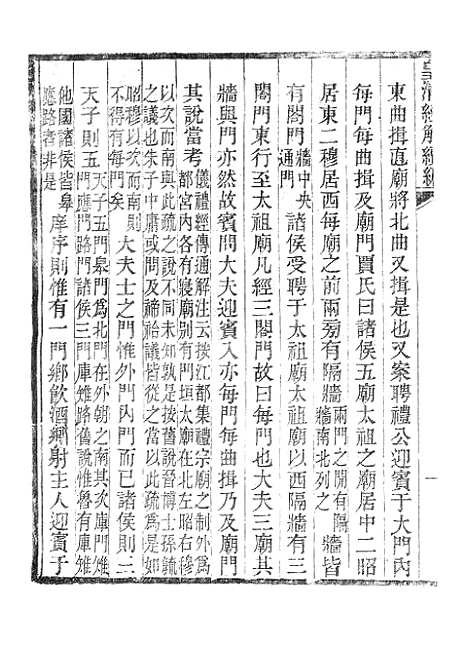 皇清經解續編
東曲揖直廟將北曲又揖是也又案聘禮公迎賓于大門內
每門每曲揖及廟門賈氏曰諸侯五廟太祖之廟居中二昭
居東二穆居西每廟之前兩旁有隔牆皆
兩門之閒有隔
牆南北列之
有閤門
牆中夾
通門
諸侯受聘于太祖廟太祖廟以西隔牆有三
閤門東行至太祖廟凡經三閤門故曰每門也大夫三廟其
牆與門亦然故賓問大夫迎賓入亦每門每曲揖乃及廟門
其說當考
儀禮經傳通解注云按江都集禮宗廟之制外爲
都宮內各有寢廟別有門垣太廟在北左昭右穆
以次而南與此疏之說不同未知孰是按舊說晉博士孫毓
之議也朱子中庸或問及禘祫議皆從之當以此疏爲
昭穆以次而南則
不得有每門矣
大夫士之門惟外門內門而已諸侯則三
天子則五
天子五門皋門爲北門在外朝之南其次庫門雉
門應門路門諸侯三門庫雉路舊說惟魯有庫雉
他國諸侯皆皋
應路者非是
庠序則惟有一門鄉飲酒鄉射主人迎賓于
一